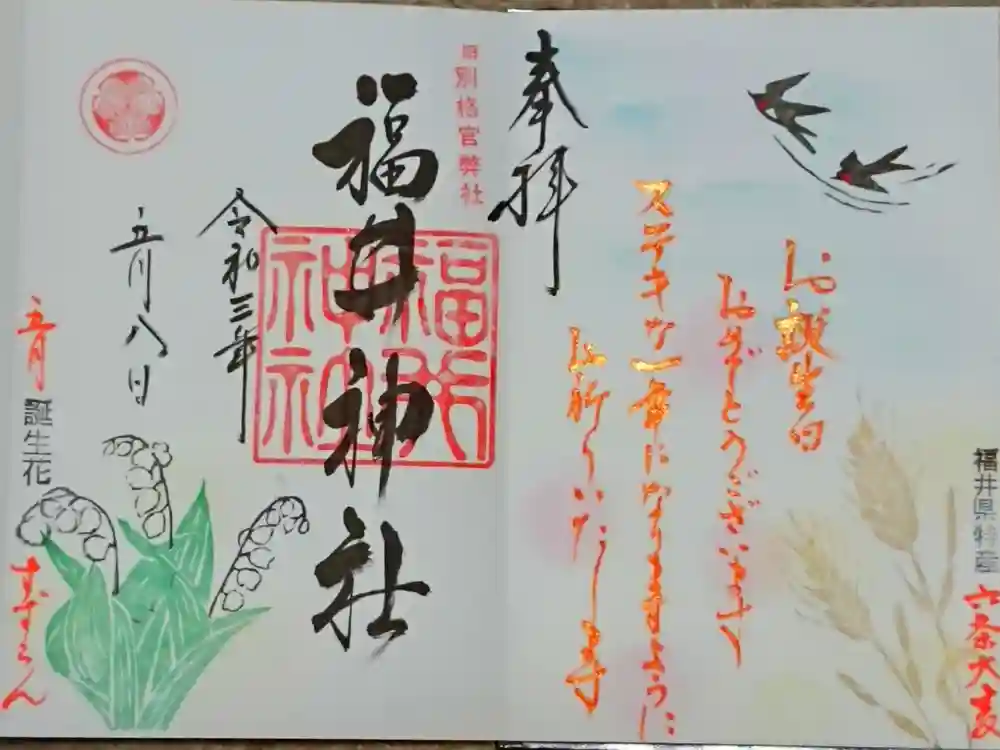 福井県特産
六条大麦
お誕生日
おめでとうございます
ステキな一年になりますように
お祈りいたします
奉拝
旧別格官幣社
福井神社
福井神社
令和三年
五月八日
五月
誕生花
すずらん